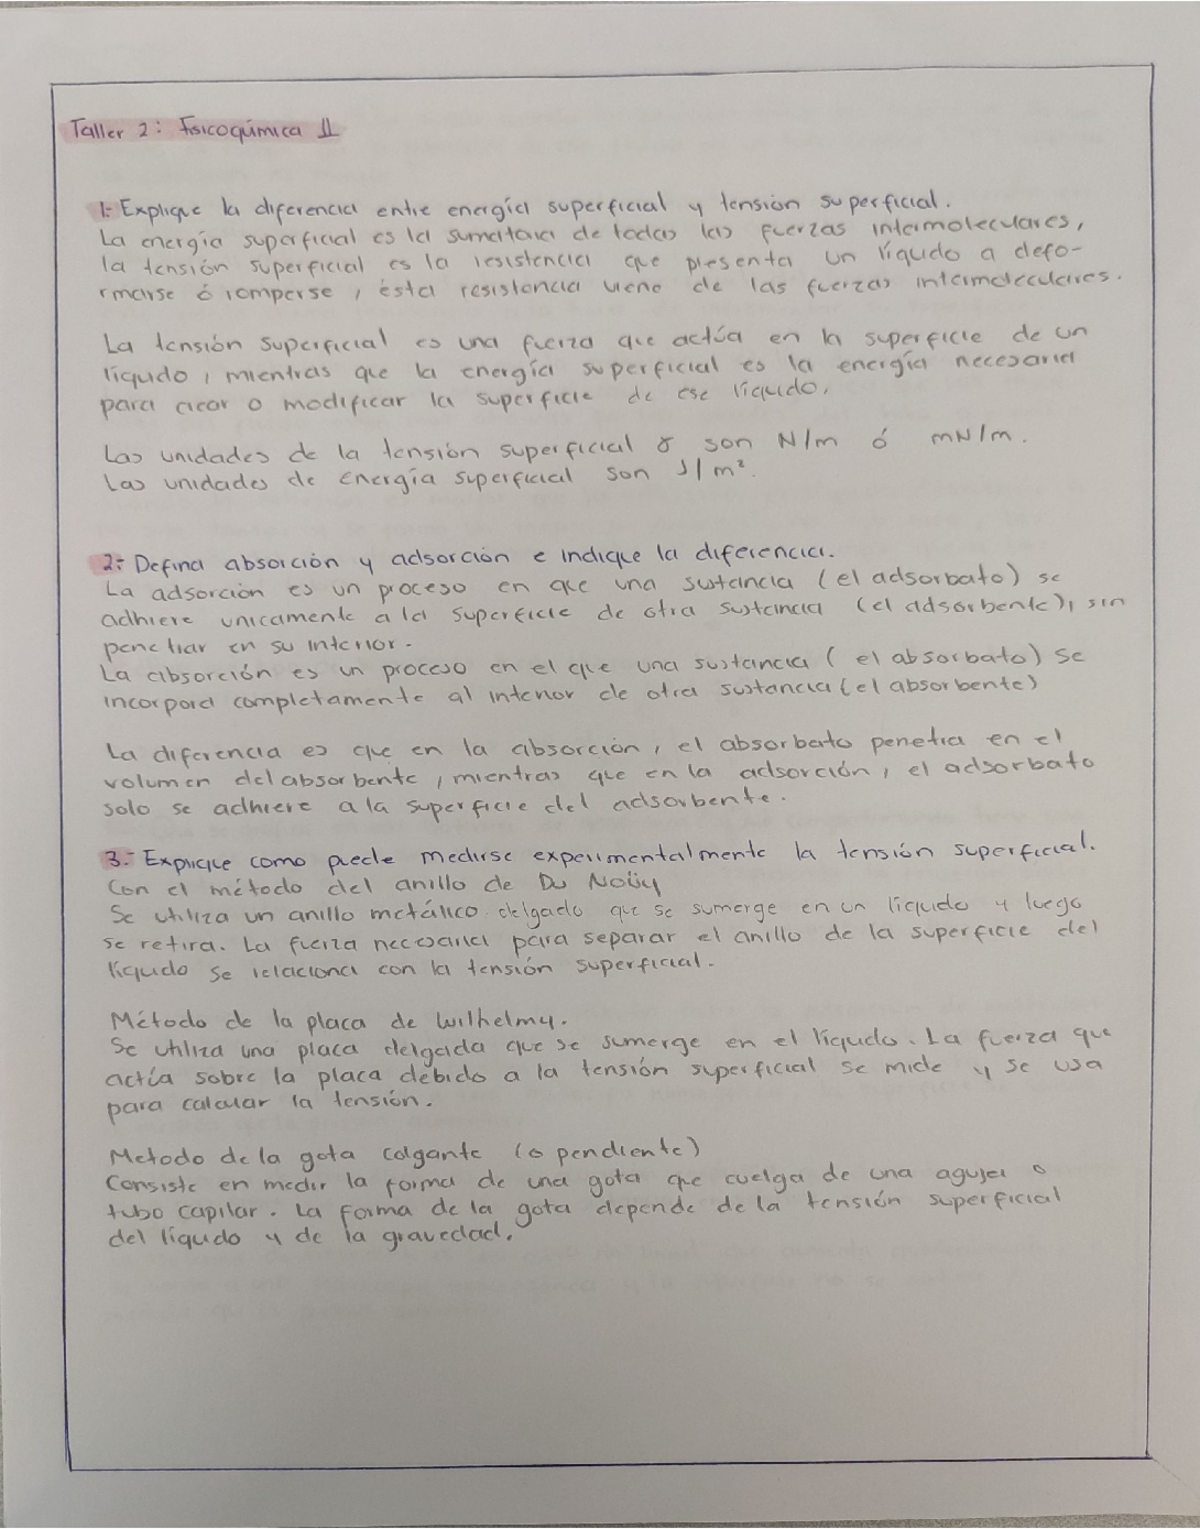 Taller 2: Fisicoquímica II
1.- Explique la diferencia entre energía superficial y tensión superficial.
La energía superficial es la sumatoria de todas las fuerzas intermoleculares,
la tensión superficial es la resistencia que presenta un líquido a defo-
rmarse ó romperse, ésta resistencia viene de las fuerzas intermoleculares.
La tensión superficial es una fuerza que actúa en la superficie de un
líquido, mientras que la energía superficial es la energía necesaria
para crear o modificar la superficie de ese líquido.
Las unidades de la tensión superficial γ son N/m ó mN/m.
Las unidades de energía superficial son J/m².
2.- Defina absorción y adsorción e indique la diferencia.
La adsorción es un proceso en que una sustancia (el adsorbato) se
adhiere unicamente a la superficie de otra sustancia (el adsorbente), sin
penetrar en su interior.
La absorción es un proceso en el que una sustancia (el absorbato) se
incorpora completamente al interior de otra sustancia (el absorbente)
La diferencia es que en la absorción, el absorbato penetra en el
volumen del absorbente, mientras que en la adsorción, el adsorbato
solo se adhiere a la superficie del adsorbente.
3.- Explique como puede medirse experimentalmente la tensión superficial.
Con el método del anillo de Du Noüy
Se utiliza un anillo metálico delgado que se sumerge en un líquido y luego
se retira. La fuerza necesaria para separar el anillo de la superficie del
líquido se relaciona con la tensión superficial.
Método de la placa de Wilhelmy.
Se utiliza una placa delgada que se sumerge en el líquido. La fuerza que
actúa sobre la placa debido a la tensión superficial se mide y se usa
para calcular la tensión.
Metodo de la gota colgante (o pendiente)
Consiste en medir la forma de una gota que cuelga de una aguja o
tubo capilar. La forma de la gota depende de la tensión superficial
del líquido y de la gravedad.